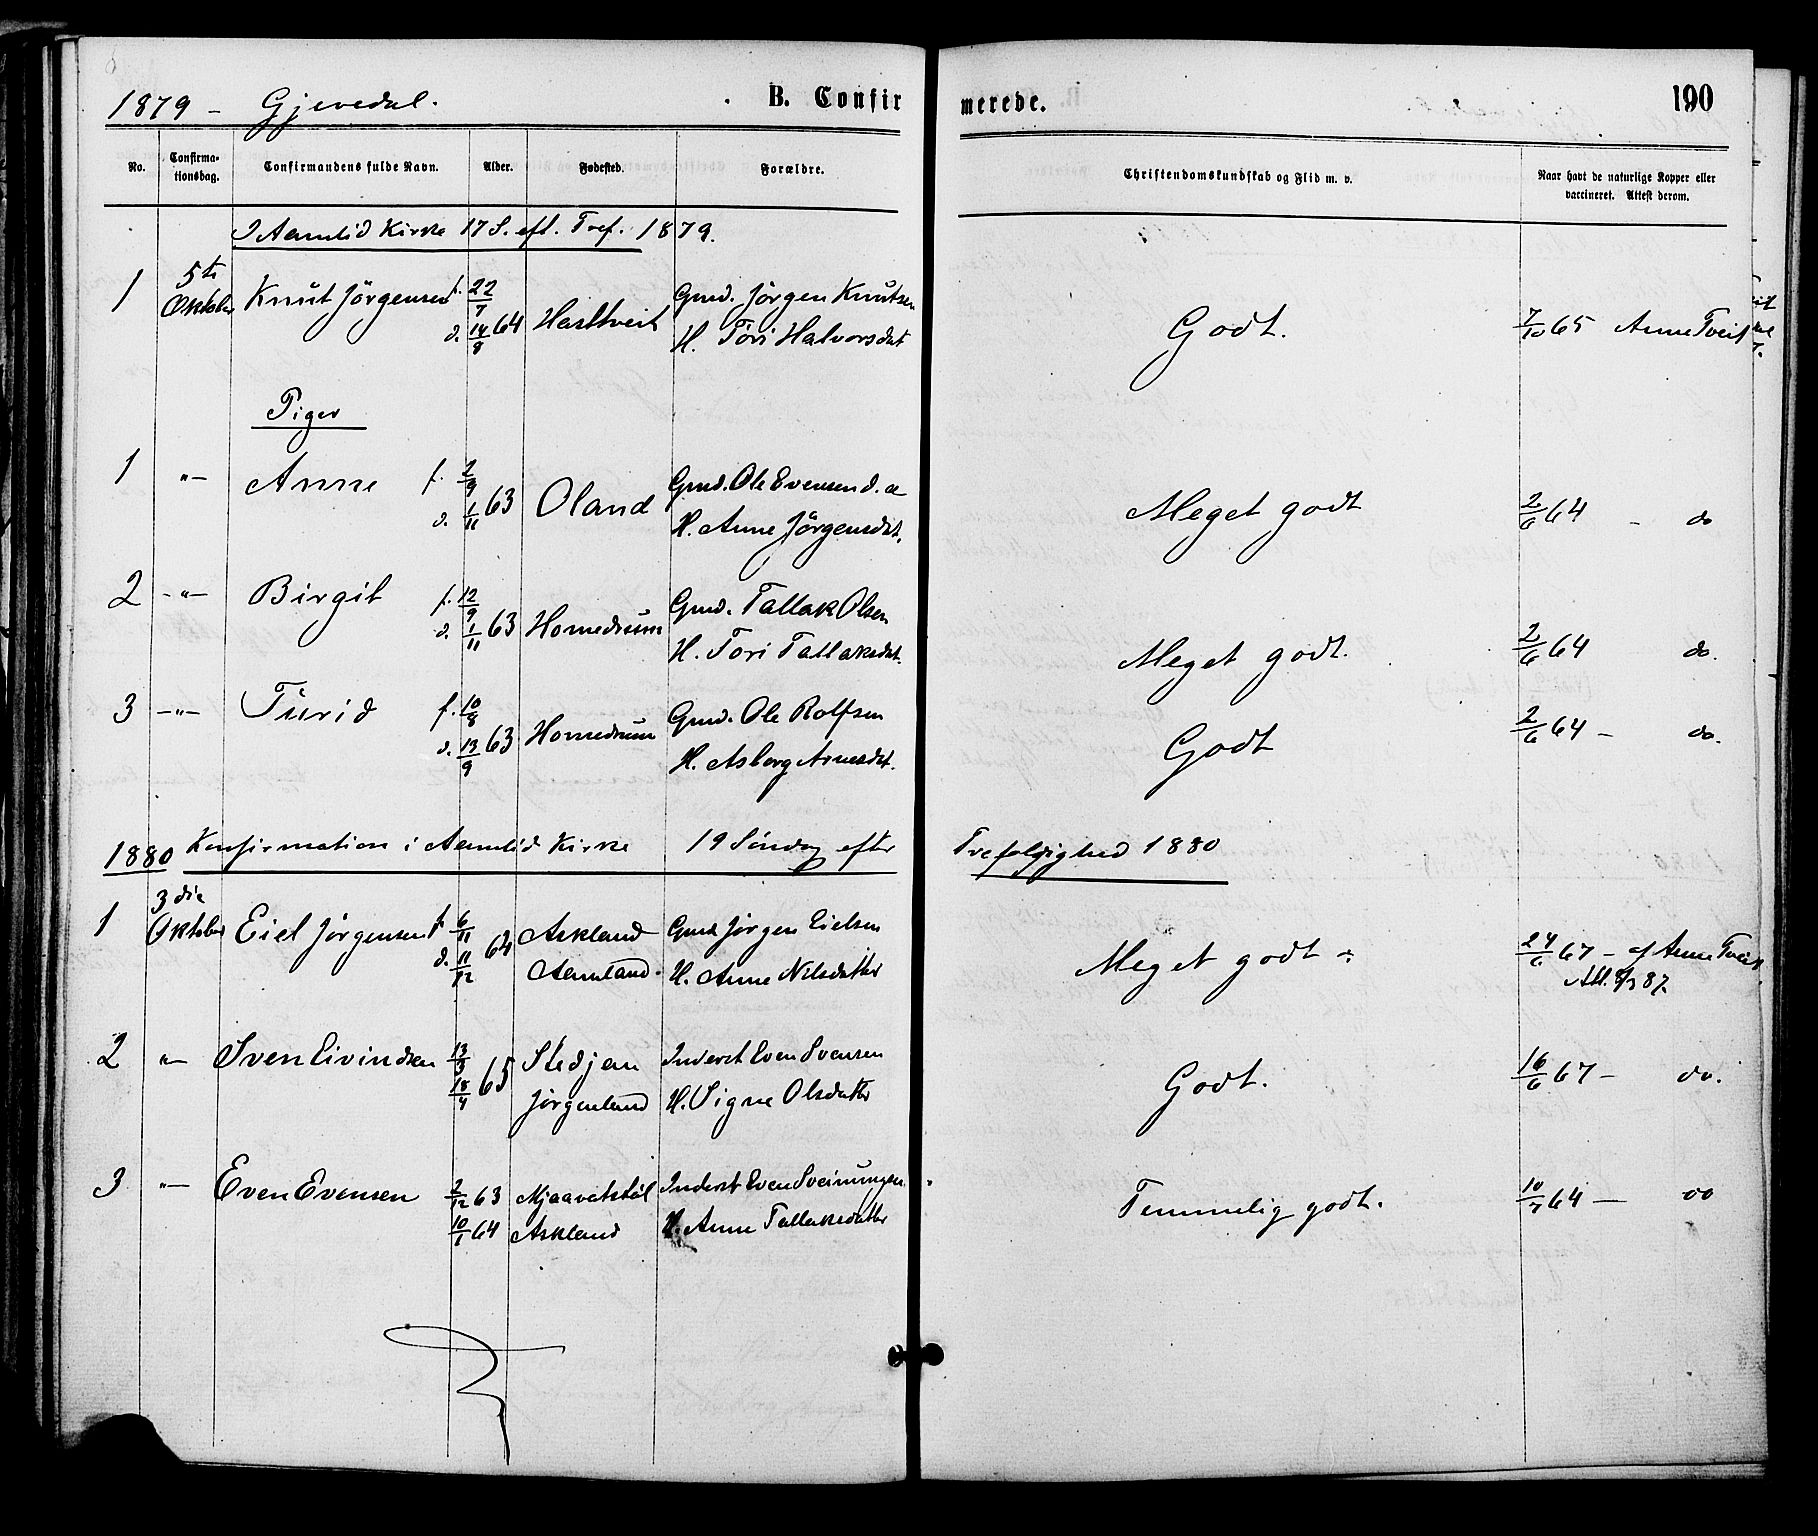 1879 – Gjevedal. B. Confirmerede. 190
No. Confirmationsdag. Confirmandens fulde Navn. Alder. Fødested. Forældre. Christendomskundskab og Flid m. v. Naar havt de naturlige Kopper eller vaccineret. Attest derom.
I Aamlid Kirke 17 S. eft. Tref. 1879.
1 5te Oktober Knut Jörgensen f. 22/7 d. 14/8 64 Hasltveit Gmd. Jörgen Knutsen
H. Töri Halvorsdat Godt. 7/10 65 Anne Tveit
Piger
1 "– Anne f. 2/9 d. 1/11 63 Oland Gmd. Ole Evensen d. æ
H. Anne Jörgensdat. Meget godt 2/6 64 – do
2 –"– Birgit f. 12/9 d. 1/11 63 Homedrum Gmd. Tallak Olsen
H. Töri Tallaksdat. Meget godt. 2/6 64 do.
3 –"– Turid f. 10/8 d. 13/9 63 Homedrum Gmd. Ole Rolfsen
H. Asborg Arnesdat. Godt 2/6 64 – do.
1880 Konfirmation i Aamlid Kirke 19 Söndag efter Trefoldighed 1880
1 3die Oktober Eiel Jörgensen f. 6/11 d. 11/12 64 Askland Gmd Jörgen Eielsen
Aamland. H. Anne Nilsdatter Meget godt 24/6 67 – af Anne Tveit
Att. 8/3 87.
2 "– Sven Eivindsen 13/3 18/4 65 Stedjan Inderst Even Svensen
Jörgenland H. Signe Olsdatter Godt. 16/6 67 – do.
3 "– Even Evensen 2/12 63 Mjaavatstöl Inderst Even Sveinungsen
10/1 64 Askland H. Anne Tallaksdatter Temmelig godt. 10/7 64 – do